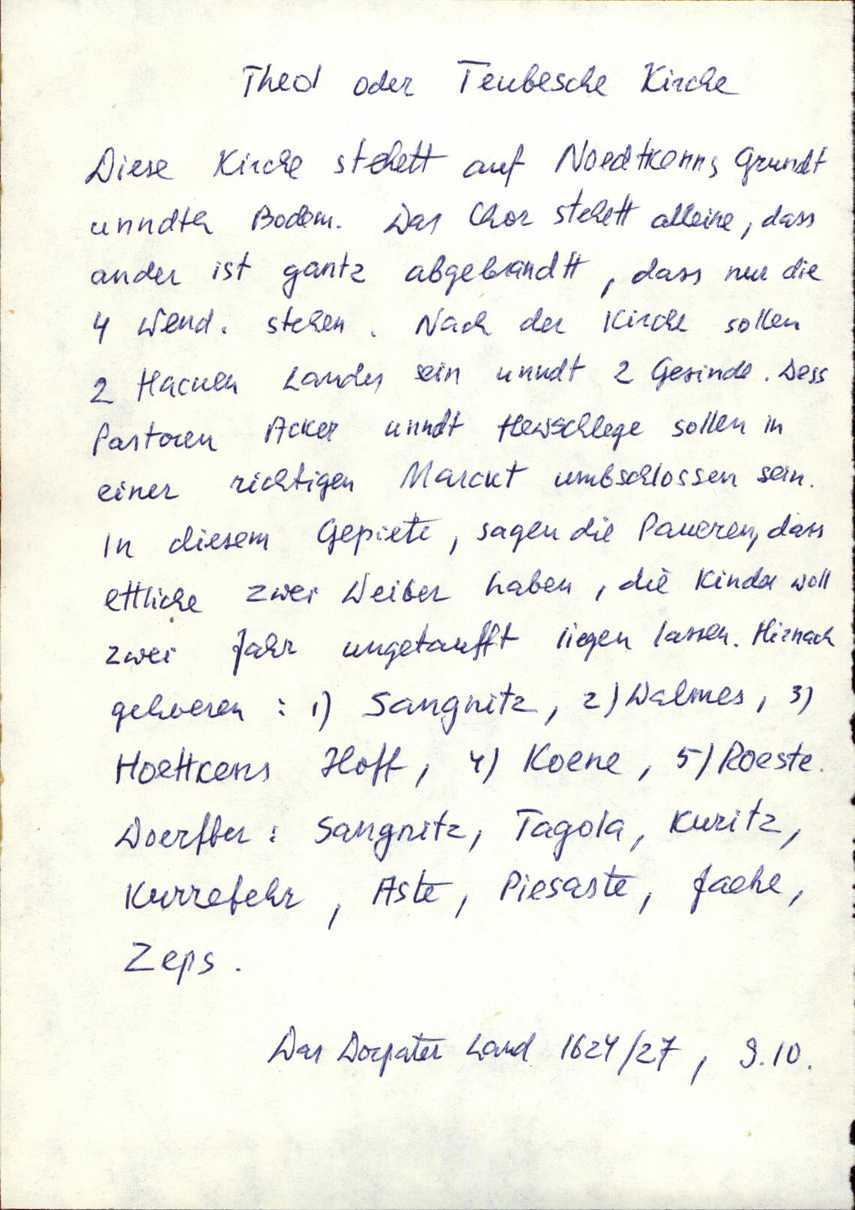 Theol oder Teubesche Kirche
Diese Kirche stehett auf Noedtkenns Grundt
unndth Bodem. Das Chor stehett alleine, dass
ander ist gantz abgebrandtt, dass nur die
4 Wend. stehen. Nach der Kirche sollen
2 Hacuen Landes sein unndt 2 Gesinde. Dess
Pastoren Acker unndt Hewschlege sollen in
einer richtigen Marckt umbschlossen sein.
In diesem Gepiete, sagen die Paueren, dass
ettliche zwei Weiber haben, die Kinder woll
zwei Jahr ungetaufft liegen lassen. Hirnach
gehoeren : 1) Sangnitz, 2) Walmes, 3)
Hoettkens Hoff, 4) Koene, 5) Roeste.
Doerffer : Sangnitz, Tagola, Kuritz,
Kurrefehr, Aste, Piesaste, Jaehe,
Zeps.
Das Dorpater Land 1624/27, 9.10.